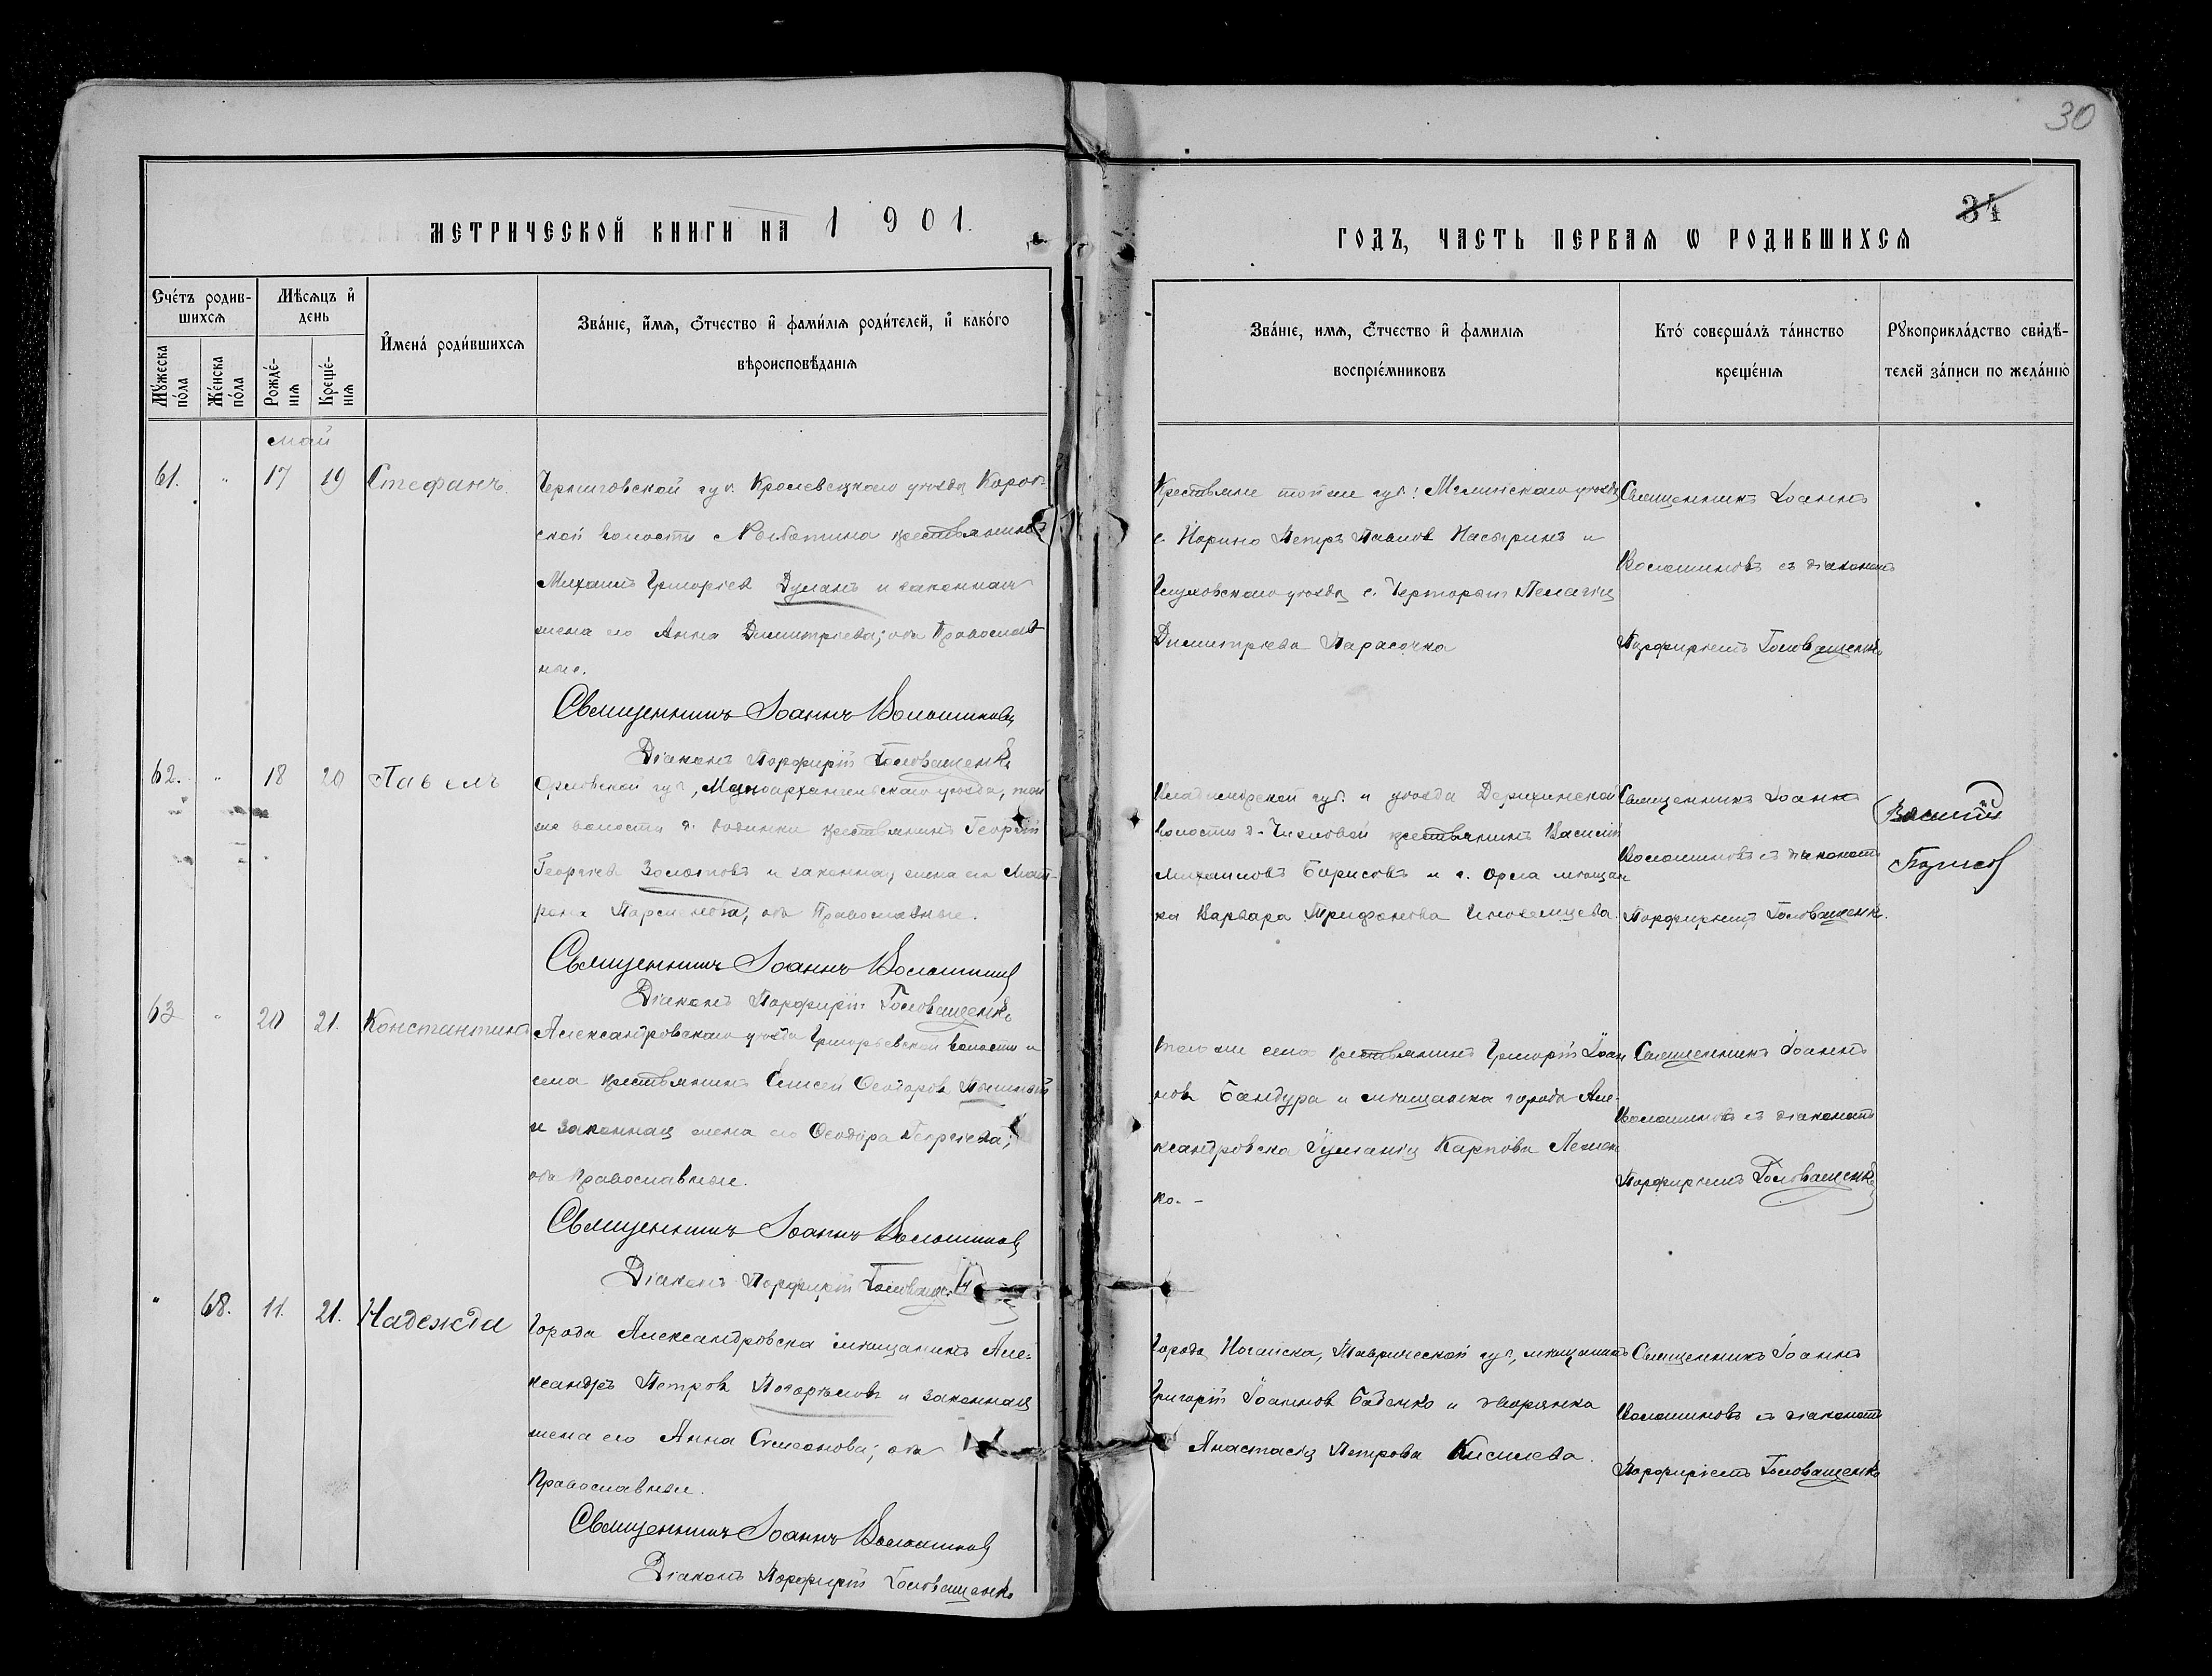 30
34
МЕТРИЧЕСКОЙ КНИГИ НА 1901.
ГОДЪ, ЧАСТЬ ПЕРВАЯ Ѡ РОДИВШИХСЯ
Сче́тъ родив-
шихся
Мѣсяцъ и҆
день
Му́жеска
по́ла
Же́нска
по́ла
Рожде́-
нія
Креще́-
нія
И҆мена́ роди́вшихся
Зва́ніе, и҆́мя, ѻ҆́тчество и҆ фами́лія роди́телей, и҆ како́го
вѣроисповѣ́данія
Зва́ніе, имя, ѻ҆́тчество и҆ фамилія
воспріе́мниковъ
Кто́ соверша́лъ та́инство
креще́нія
Рꙋкоприкла́дство свидѣ́-
телей за́писи по жела́нію
Май
61. " 17 19 Стефанъ.
Черниговской губ. Кролевецкаго уѣзда Короп-
ской волости с. Рыботина крестьянинъ
Михаилъ Григоріевъ Дуланъ и законная
жена его Анна Димитріева; оба Православ-
ные.
Священникъ Іоаннъ Волошиновъ
Діаконъ Порфирій Головащенко
Крестьяне той же губ: Мглинскаго уѣзда
с. Петръ Павловъ и
Глуховскаго уѣзда с. Пелагія
Димитріева Парасочка
Священникъ Іоаннъ
Волошиновъ съ діакономъ
Порфиріемъ Головащенко
62. " 18 20 Павелъ
Орловской губ., Малоархангельскаго уѣзда, той
же волости д. крестьянинъ Георгій
Георгіевъ Золотовъ и законная жена его Мат-
рона оба Православные.
Священникъ Іоаннъ Волошиновъ
Діаконъ Порфирій Головащенко
Владимірской губ. и уѣзда
волости д. крестьянинъ Василій
Михаиловъ Борисовъ и г. Орла мѣщан-
ка Варвара Трифонова Иноземцева.
Священникъ Іоаннъ
Волошиновъ съ діакономъ
Порфиріемъ Головащенко.
Василій
Борисов
63 " 20 21. Константинъ
Александровскаго уѣзда Григорьевской волости и
села крестьянинъ Елисей Ѳеодоровъ
и законная жена его Ѳеодора Георгіева;
оба Православные.
Священникъ Іоаннъ Волошиновъ
Діаконъ Порфирій Головащенко
Того же села крестьянинъ Григорій Іоан-
новъ Бандура и мѣщанка города Але-
ксандровска Іуліанія Карпова
ко. –
Священникъ Іоаннъ
Волошиновъ съ діакономъ
Порфиріемъ Головащенко
" 68. 11. 21. Надежда
Города Александровска мѣщанинъ Але-
ксандръ Петровъ Погорѣловъ и законная
жена его Анна Симеонова; оба
Православные.
Священникъ Іоаннъ Волошиновъ
Діаконъ Порфирій Головащенко
Города Ногайска, Таврической губ., мѣщанинъ
Григорій Іоанновъ Баденко и дворянка
Анастасія Петрова Киселева.
Священникъ Іоаннъ
Волошиновъ съ діакономъ
Порфиріемъ Головащенко